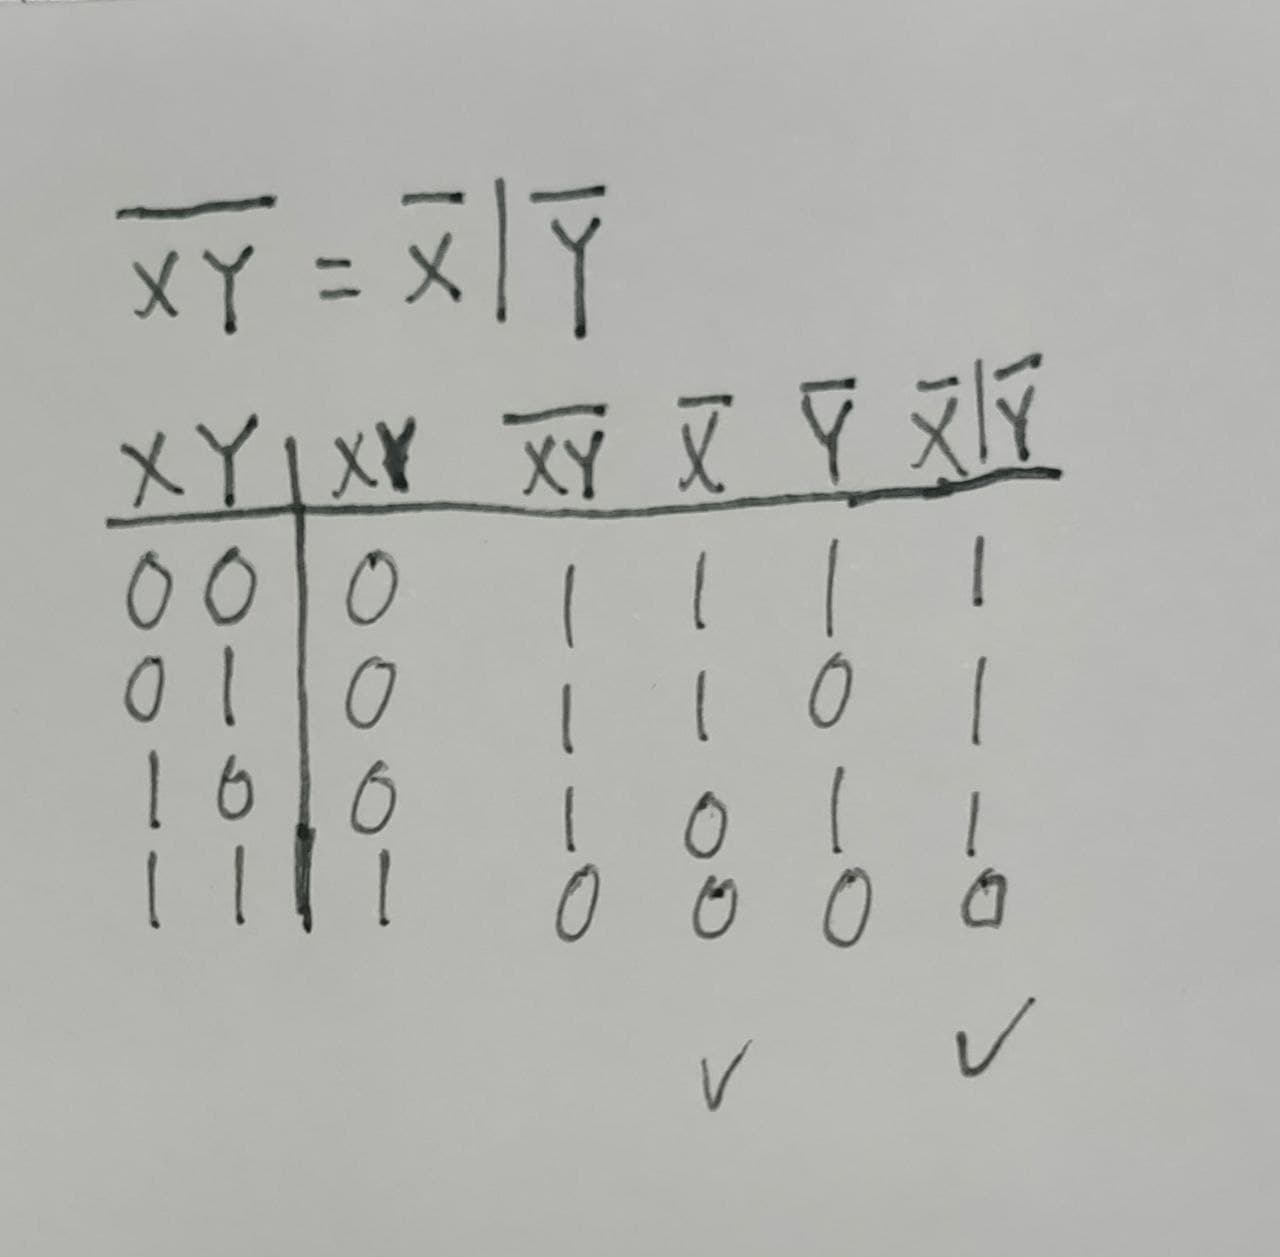 X̅Y̅ = X̅ | Y̅
X Y | XY X̅Y̅ X̅ Y̅ X̅|Y̅
0 0 | 0 1 1 1 1
0 1 | 0 1 1 0 1
1 0 | 0 1 0 1 1
1 1 | 1 0 0 0 0
✓ ✓